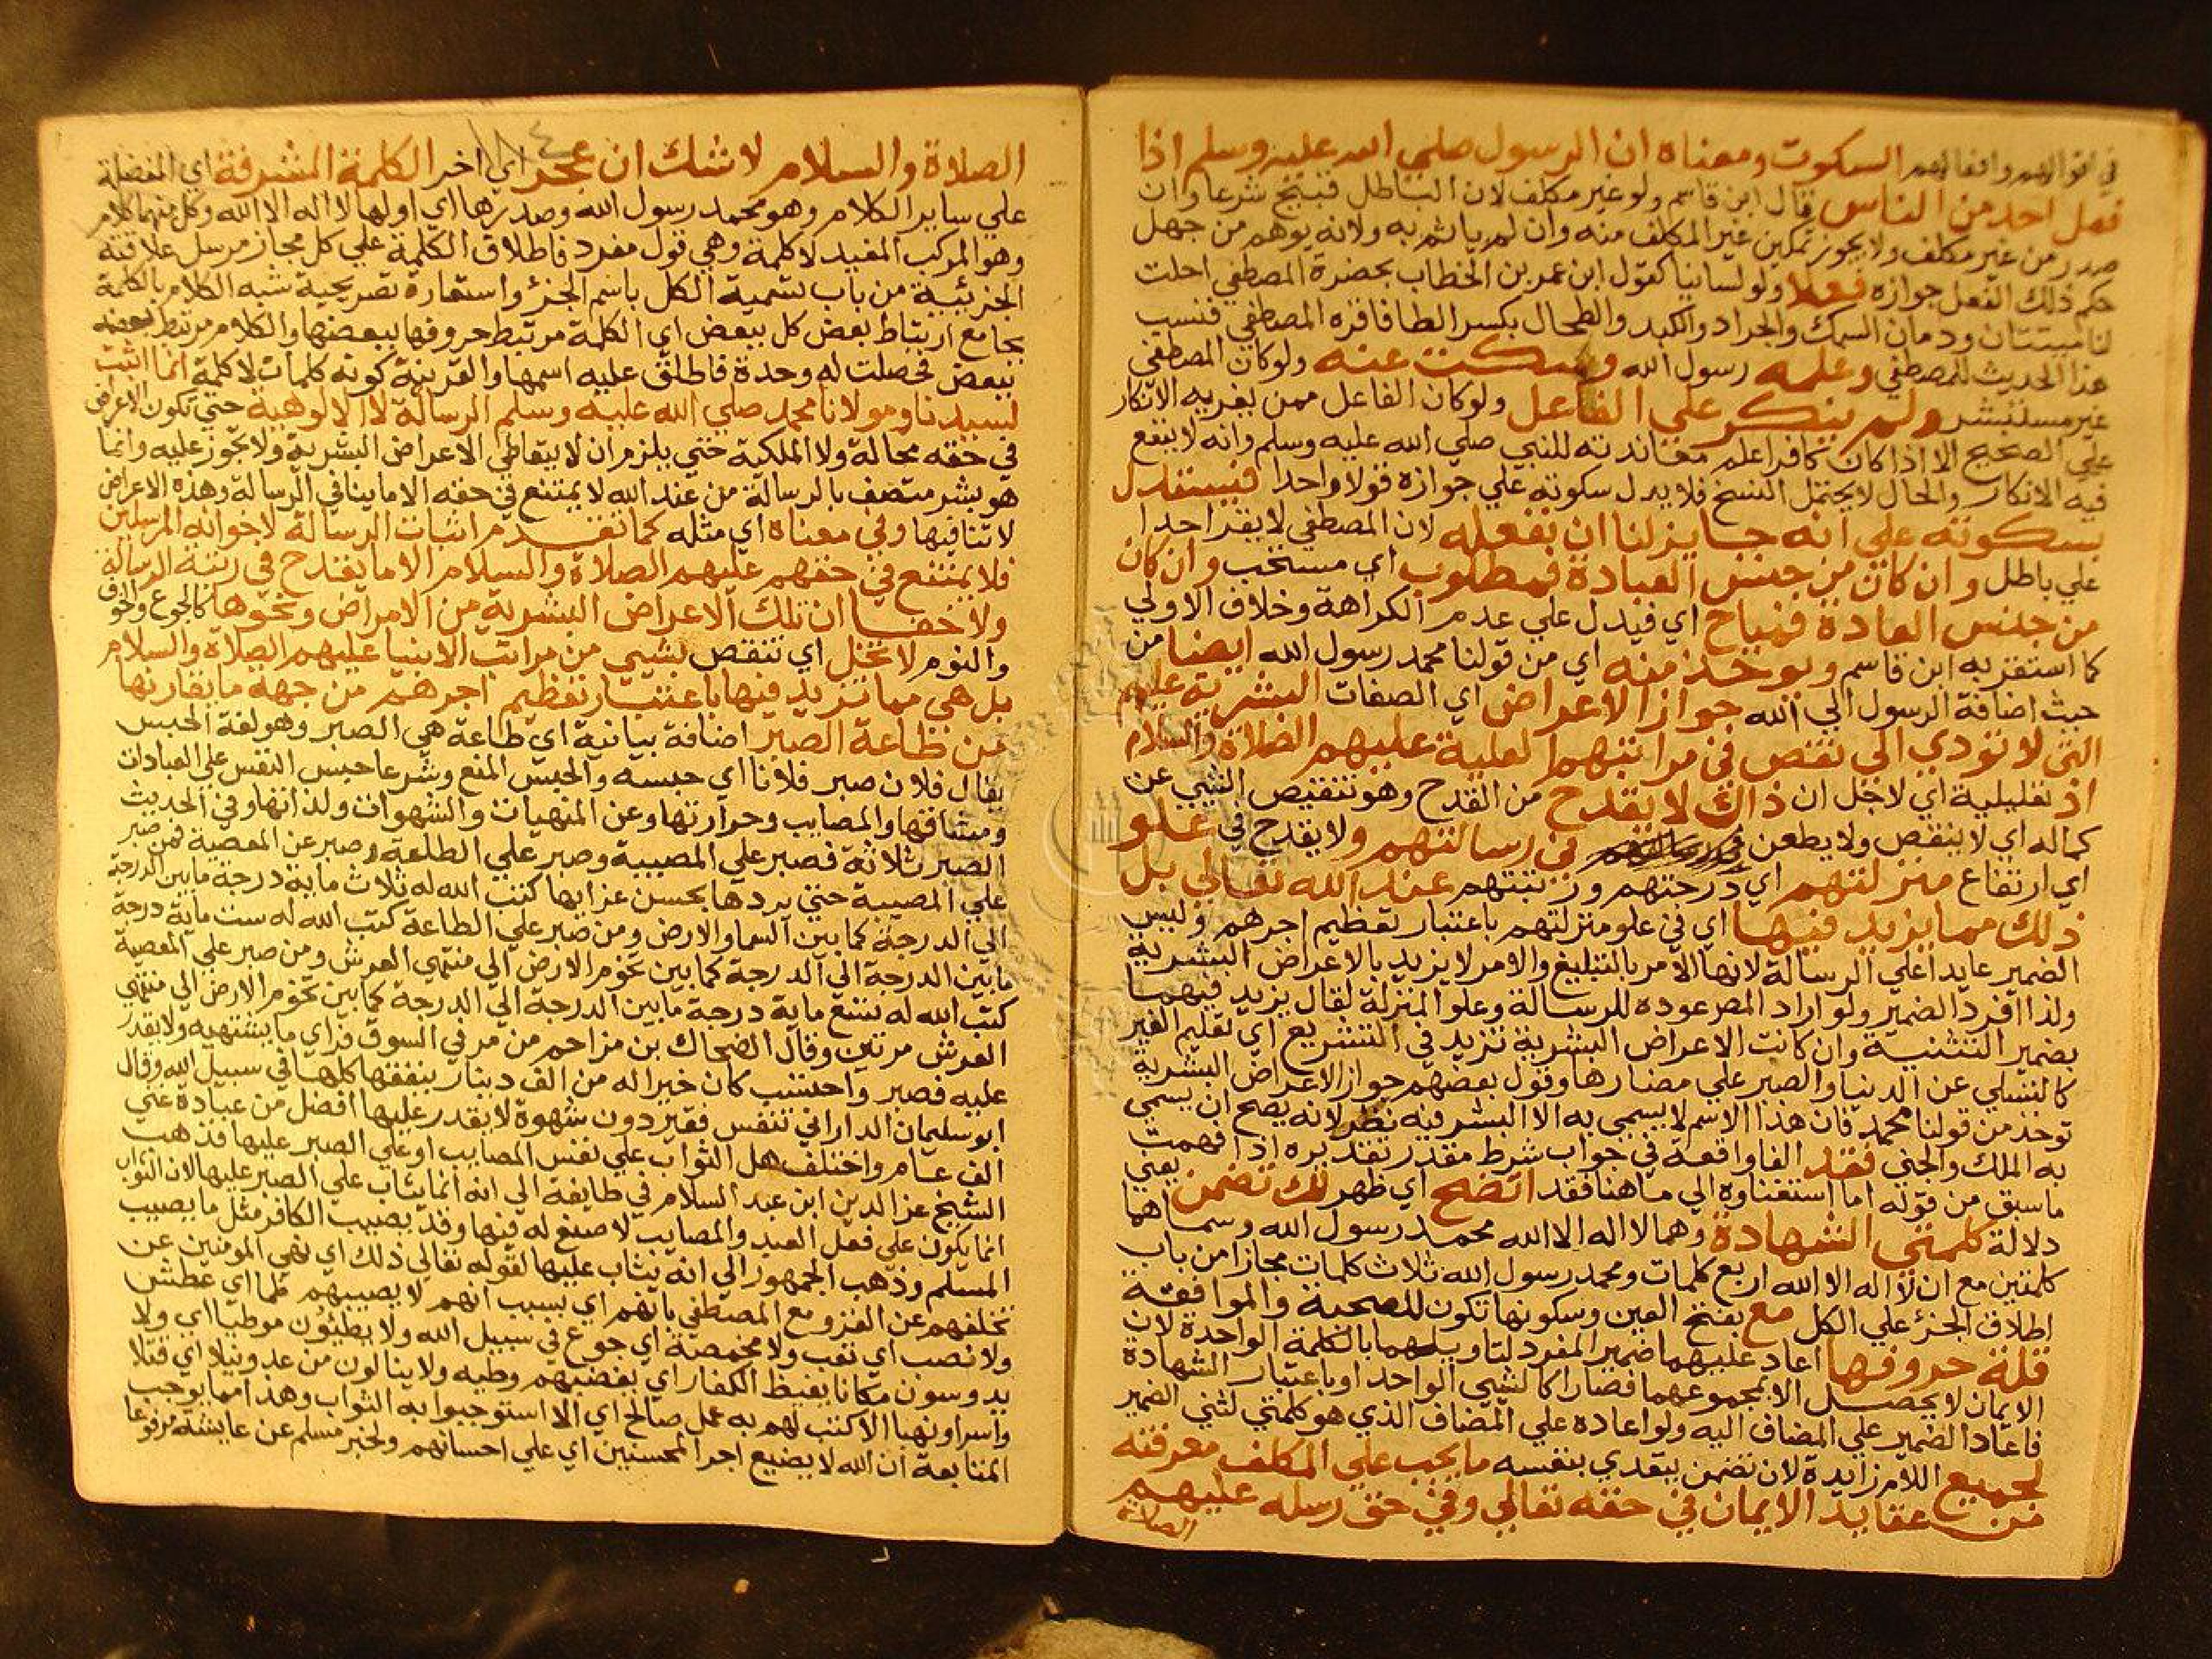 في اقوالهم وافعالهم السكوت ومعناه ان الرسول صلي الله عليه وسلم اذا
فعل احد من الناس قال ابن قاسم ولو غير مكلف لان الباطل قبيح شرعا وان
صدر من غير مكلف ولا يجوز تمكين غير المكلف منه وان لم ياثم به ولانه يوهم من جهل
حكم ذلك الفعل جوازه فعلا ولو لسانيا كقول ابن عمر بن الخطاب بحضرة المصطفي احلت
لنا ميتتان ودمان السمك والجراد والكبد والطحال بكسر الطا فاقره المصطفي فنسب
هذا الحديث للمصطفي وعلمه رسول الله وسكت عنه ولو كان المصطفي
غير مستبشر ولم ينكر علي الفاعل ولو كان الفاعل ممن يغريه الانكار
علي الصحيح الا اذا كان كافرا علم معاندته للنبي صلي الله عليه وسلم وانه لا ينفع
فيه الانكار والحال لا يحتمل النسخ فلا يدل سكوته علي جوازه قولا واحدا فيستدل
بسكوته علي انه جايز لنا ان نفعله لان المصطفي لا يقر احدا
علي باطل وان كان من جنس العبادة فمطلوب اي مستحب وان كان
من جنس العادة فمباح اي فيدل علي عدم الكراهة وخلاف الاولي
كما استقر به ابن قاسم ويوخذ منه اي من قولنا محمد رسول الله ايضا من
حيث اضافة الرسول الي الله جواز الاعراض اي الصفات البشرية عليهم
التي لا تودي الي نقص في مراتبهم العلية عليهم الصلاة والسلام
اذ تعليلية اي لاجل ان ذاك لا يقدح من القدح وهو تنقيص الشي عن
كماله اي لا ينقص ولا يطعن في رسالتهم ولا يقدح في علو
اي ارتفاع منزلتهم اي درجتهم ورتبتهم عند الله تعالي بل
ذلك مما يزيد فيها اي في علو منزلتهم باعتبار تعظيم اجرهم وليس
الضمير عايدا علي الرسالة لانها الامر بالتبليغ والامر لا يزيد بالاعراض البشرية
ولذا افرد الضمير ولو اراد المص عوده للرسالة وعلو المنزلة لقال يزيد فيهما
بضمير التثنية وان كانت الاعراض البشرية تزيد في التشريع اي تعليم الغير
كالتسلي عن الدنيا والصبر علي مضارها وقول بعضهم جواز الاعراض البشرية
توخذ من قولنا محمد فان هذا الاسم لا يسمي به الا البشر فيه نظر لانه يصح ان يسمي
به الملك والجني فقد الفا واقعة في جواب شرط مقدر تقديره اذا فهمت
ما سبق من قوله اما استغناوه الي ما هنا فقد اتضح اي ظهر لك تضمن يعني
دلالة كلمتي الشهادة وهما لا اله الا الله محمد رسول الله وسماهما
كلمتين مع ان لا اله الا الله اربع كلمات ومحمد رسول الله ثلاث كلمات مجازا من باب
اطلاق الجزء علي الكل مع بفتح العين وسكونها تكون للصحبة والموافقة
قلة حروفها اعاد عليهما ضمير المفرد لتاويلهما بالكلمة الواحدة لان
الايمان لا يحصل الا بمجموعهما فصارا كالشي الواحد او باعتبار الشهادة
فاعاد الضمير علي المضاف اليه ولو اعاده علي المضاف الذي هو كلمتي لثني الضمير
لجميع اللام زايدة لان تضمن يتعدي بنفسه ما يجب علي المكلف معرفته
من عقايد الايمان في حقه تعالي وفي حق رسله عليهم
الصلاة
الصلاة والسلام لا شك ان عجز اي اخر الكلمة المشرفة اي المفضلة
علي ساير الكلام وهو محمد رسول الله وصدرها اي اولها لا اله الا الله وكل منهما كلام
وهو المركب المفيد لا كلمة وهي قول مفرد فاطلاق الكلمة علي كل مجاز مرسل علاقته
الجزئيية من باب تسمية الكل باسم الجزء واستعارة تصريحية شبه الكلام بالكلمة
بجامع ارتباط بعض كل ببعض اي الكلمة مرتبط حروفها ببعضها والكلام مرتبط بعضه
ببعض فحصلت له وحدة فاطلق عليه اسمها والقرينة كونه كلمات لا كلمة انما اثبت
لسيدنا ومولانا محمد صلي الله عليه وسلم الرسالة لا الالوهية حتي تكون الاعراض
في حقه محالة ولا الملكية حتي يلزم ان لا يتعاطي الاعراض البشرية ولا تجوز عليه وانما
هو بشر متصف بالرسالة من عند الله لا يمتنع في حقه الا ما ينافي الرسالة وهذه الاعراض
لا تنافيها وفي معناه اي مثله كما تقدم اثبات الرسالة لاخوانه المرسلين
فلا يمتنع في حقهم عليهم الصلاة والسلام الا ما يقدح في رتبة الرسالة
ولا خفا ان تلك الاعراض البشرية من الامراض ونحوها كالجوع والخوف
والنوم لا تخل اي تنقص بشيي من مراتب الانبيا عليهم الصلاة والسلام
بل هي مما تزيد فيها باعتبار تعظيم اجرهم من جهة ما يقارنها
من طاعة الصبر اضافة بيانية اي طاعة هي الصبر وهو لغة الحبس
يقال فلان صبر فلانا اي حبسه والحبس المنع وشرعا حبس النفس علي العبادات
ومشاقها والمصايب وحرارتها وعن المنهيات والشهوات ولذاتها وفي الحديث
الصبر ثلاثة فصبر علي المصيبة وصبر علي الطاعة وصبر عن المعصية فمن صبر
علي المصيبة حتي يردها بحسن عزايها كتب الله له ثلاث ماية درجة ما بين الدرجة
الي الدرجة كما بين السما والارض ومن صبر علي الطاعة كتب الله له ست ماية درجة
ما بين الدرجة الي الدرجة كما بين تخوم الارض الي منتهي العرش ومن صبر علي المعصية
كتب الله له تسع ماية درجة ما بين الدرجة الي الدرجة كما بين تخوم الارض الي منتهي
العرش مرتين وقال الضحاك بن مزاحم من مر في السوق فراي ما يشتهيه ولا يقدر
عليه فصبر واحتسب كان خيرا له من الف دينار ينفقها كلها في سبيل الله وقال
ابو سليمان الداراني تنفس فقير دون شهوة لا يقدر عليها افضل من عبادة غني
الف عام واختلف هل الثواب علي نفس المصايب او علي الصبر عليها فذهب
الشيخ عز الدين ابن عبد السلام في طايفة الي انه انما يثاب علي الصبر عليها لان الثواب
انما يكون علي فعل العبد والمصايب لا صنع له فيها وقد يصيب الكافر مثل ما يصيب
المسلم وذهب الجمهور الي انه يثاب عليها لقوله تعالي ذلك اي نهي المومنين عن
تخلفهم عن الغزو مع المصطفي بانهم اي بسبب انهم لا يصيبهم ظما اي عطش
ولا نصب اي تعب ولا مخمصة اي جوع في سبيل الله ولا يطئون موطيا اي ولا
يدوسون مكانا يغيظ الكفار اي يغضبهم وطيه ولا ينالون من عدو نيلا اي قتلا
واسرا ونهبا الا كتب لهم به عمل صالح اي الا استوجبوا به الثواب وهذا مما يوجب
المتابعة ان الله لا يضيع اجر المحسنين اي علي احسانهم ولخبر مسلم عن عايشة مرفوعا